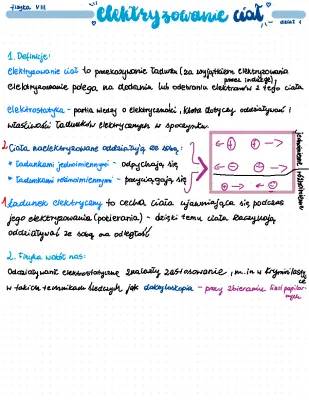 fizyka VIII
elektryzowanie ciał
dział 1
1. Definicje:
elektryzowanie ciał to przekazywanie ładunku (za wyjątkiem elektryzowania
przez indukcję),
elektryzowanie polega na dodaniu lub odebraniu elektronów z tego ciała
elektrostatyka - partia wiedzy o elektryczności, która dotyczy oddziaływań i
właściwości ładunków elektrycznych w spoczynku.
2. Ciała naelektryzowane oddziałują ze sobą:
* ładunkami jednoimiennymi - odpychają się
* ładunkami różnoimiennymi - przyciągają się
← + + →
← − − →
+ → ← −
jednoimienne
różnoimienne
1. ładunek elektryczny to cecha ciała ujawniająca się podczas
jego elektryzowania (potierania) - dzięki temu ciała zaczynają
oddziaływać ze sobą na odległość
2. Fizyka wokół nas:
Oddziaływania elektrostatyczne znalazły zastosowanie, m.in w kryminalistyce
w takich technikach śledczych jak daktyloskopia - przy zbieraniu linii papilarnych